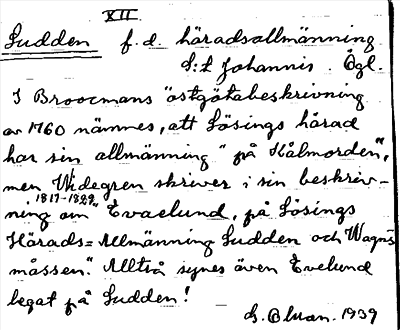 XII
Sudden f.d. häradsallmänning
S:t Johannis. Ögl.
I Broocmans "östgötabeskrivning
av 1760 nämnes, att Lösings härad
har sin allmänning "på Kålmorden",
men Widegren skriver i sin beskriv-
1817-1828
ning om "Evaelund, på Lösings
Härads=Allmänning Sudden och Wagns
måssen." Alltså synes även Evelund
legat på Sudden!
1939